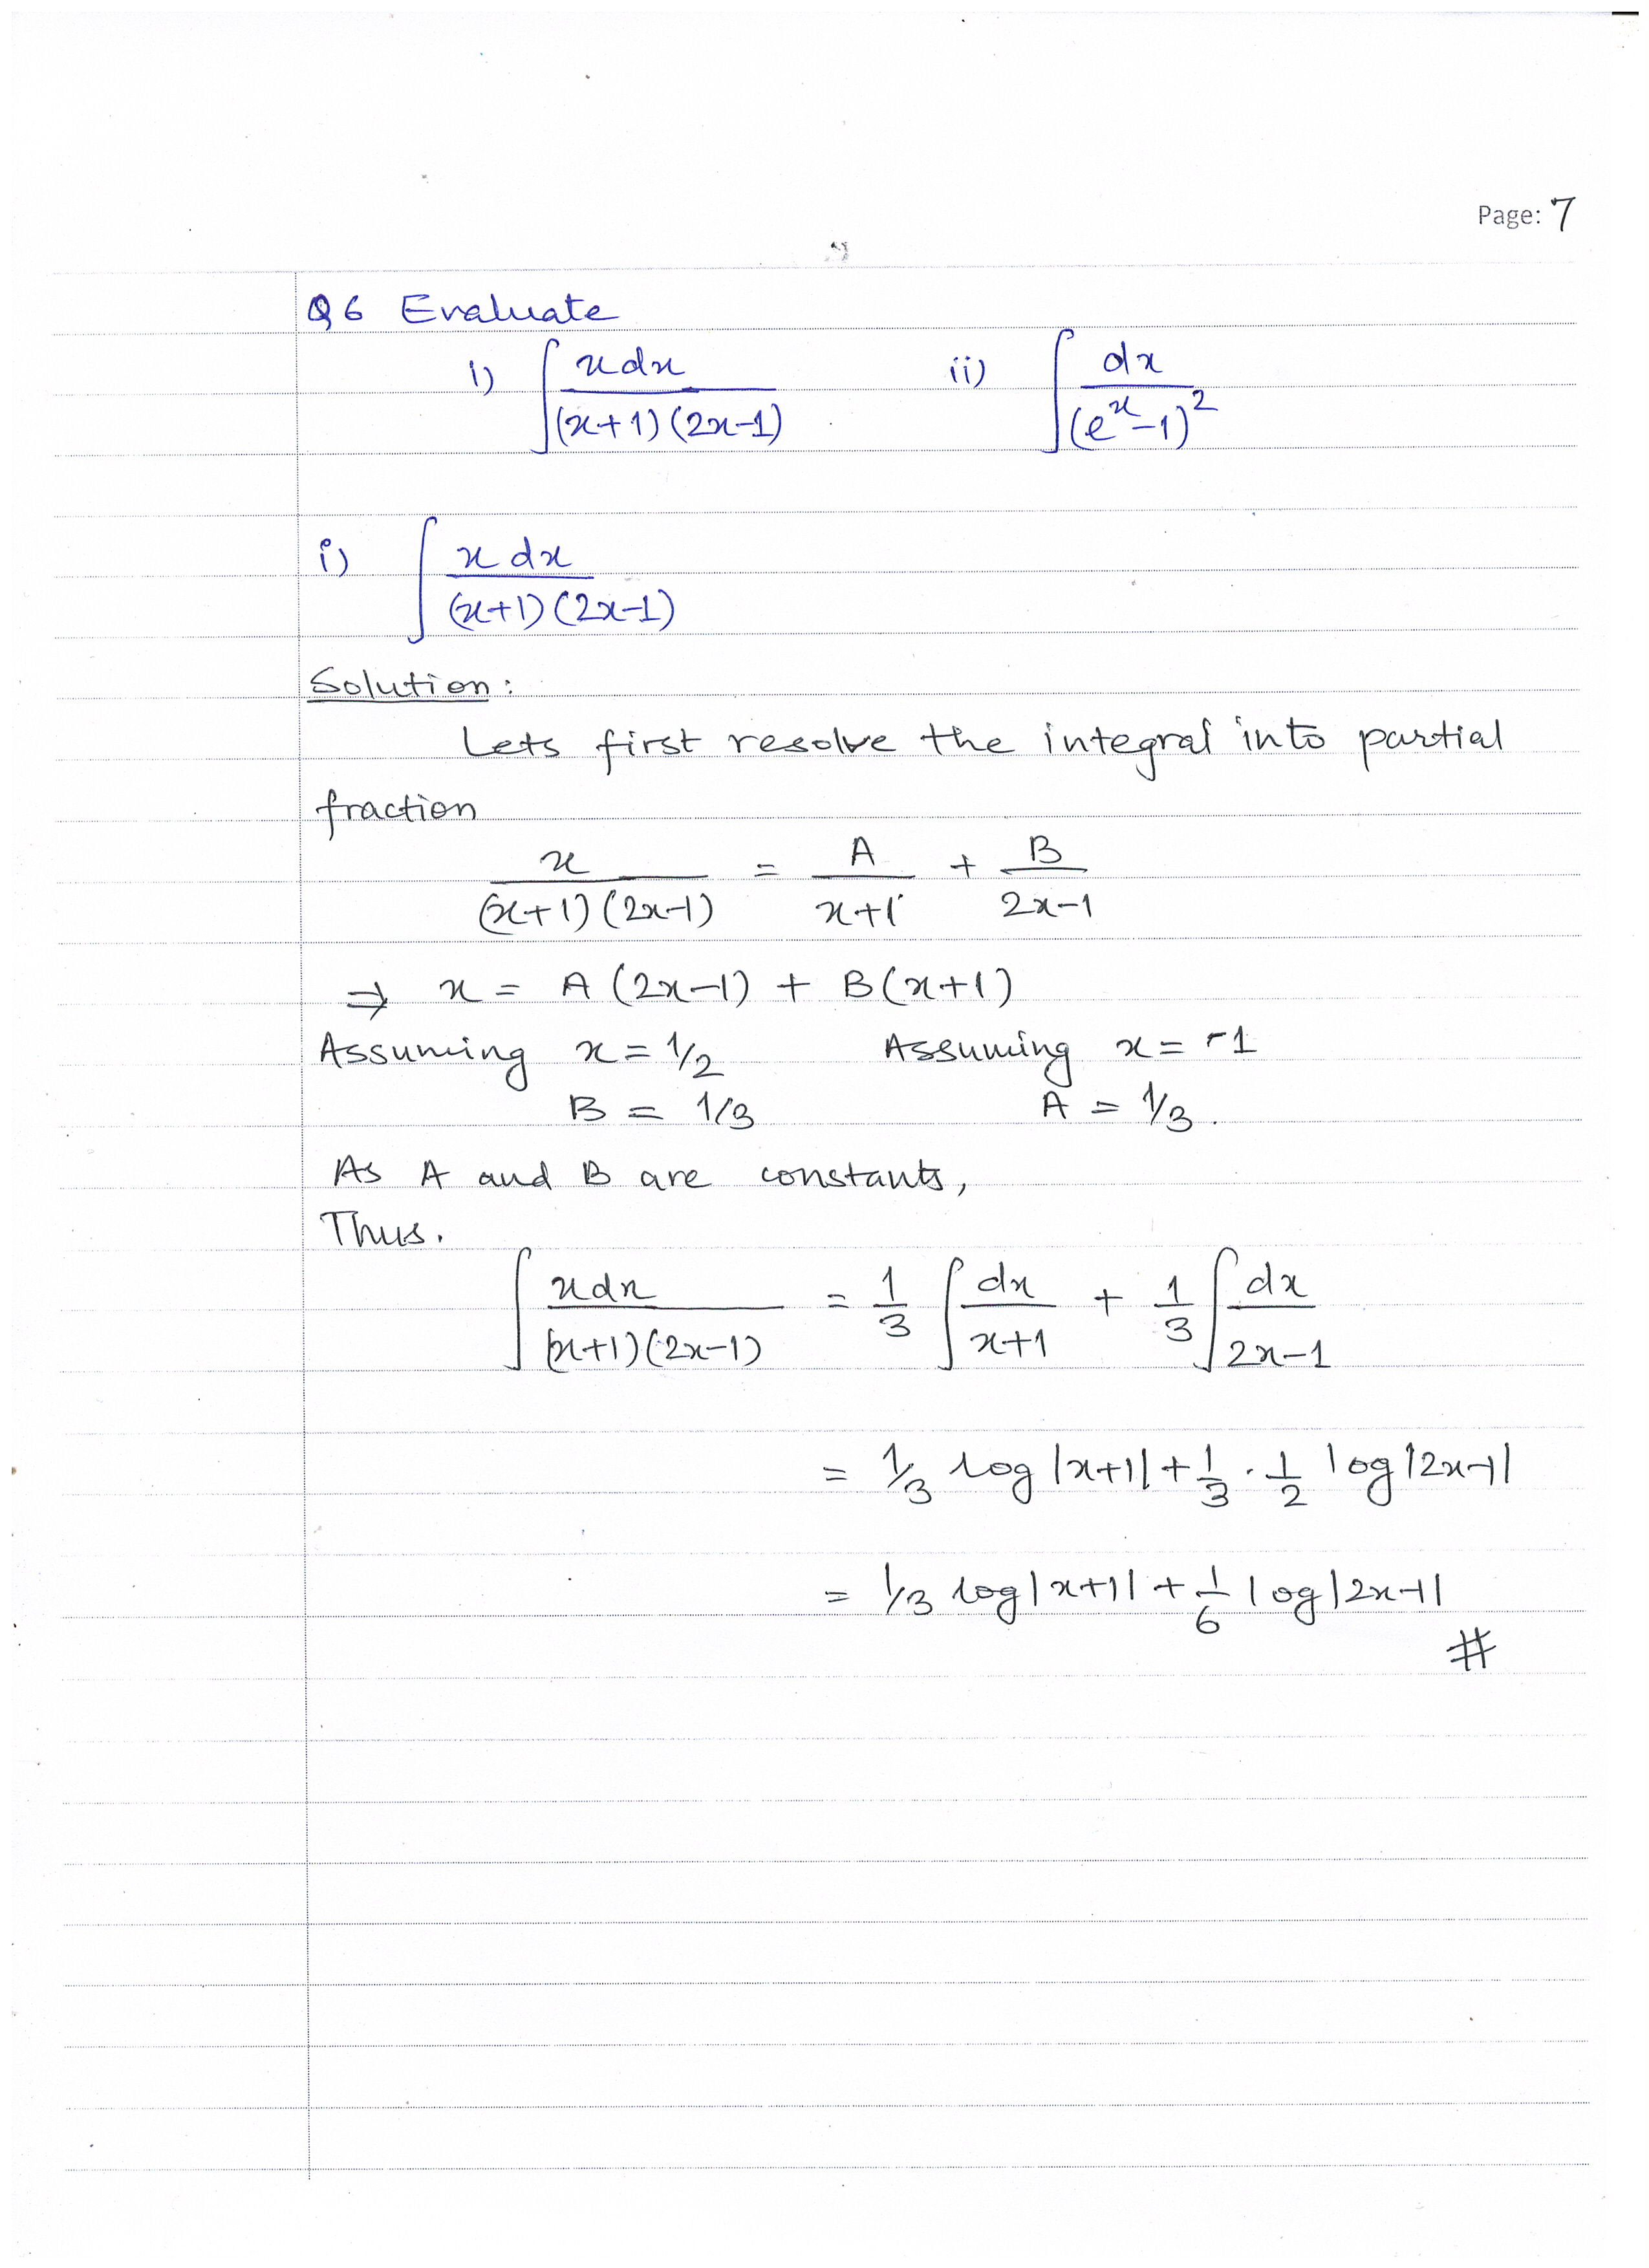 Page: 7
Q6 Evaluate
i) ∫ x dx / (x+1)(2x-1)    ii) ∫ dx / (e^x-1)^2
i) ∫ x dx / (x+1)(2x-1)
Solution:
Lets first resolve the integral into partial
fraction
x / (x+1)(2x-1) = A / x+1 + B / 2x-1
⇒ x = A(2x-1) + B(x+1)
Assuming x = 1/2    Assuming x = -1
B = 1/3    A = 1/3.
As A and B are constants,
Thus.
∫ x dx / (x+1)(2x-1) = 1/3 ∫ dx / x+1 + 1/3 ∫ dx / 2x-1
= 1/3 log|x+1| + 1/3 · 1/2 log|2x-1|
= 1/3 log|x+1| + 1/6 log|2x-1|
#